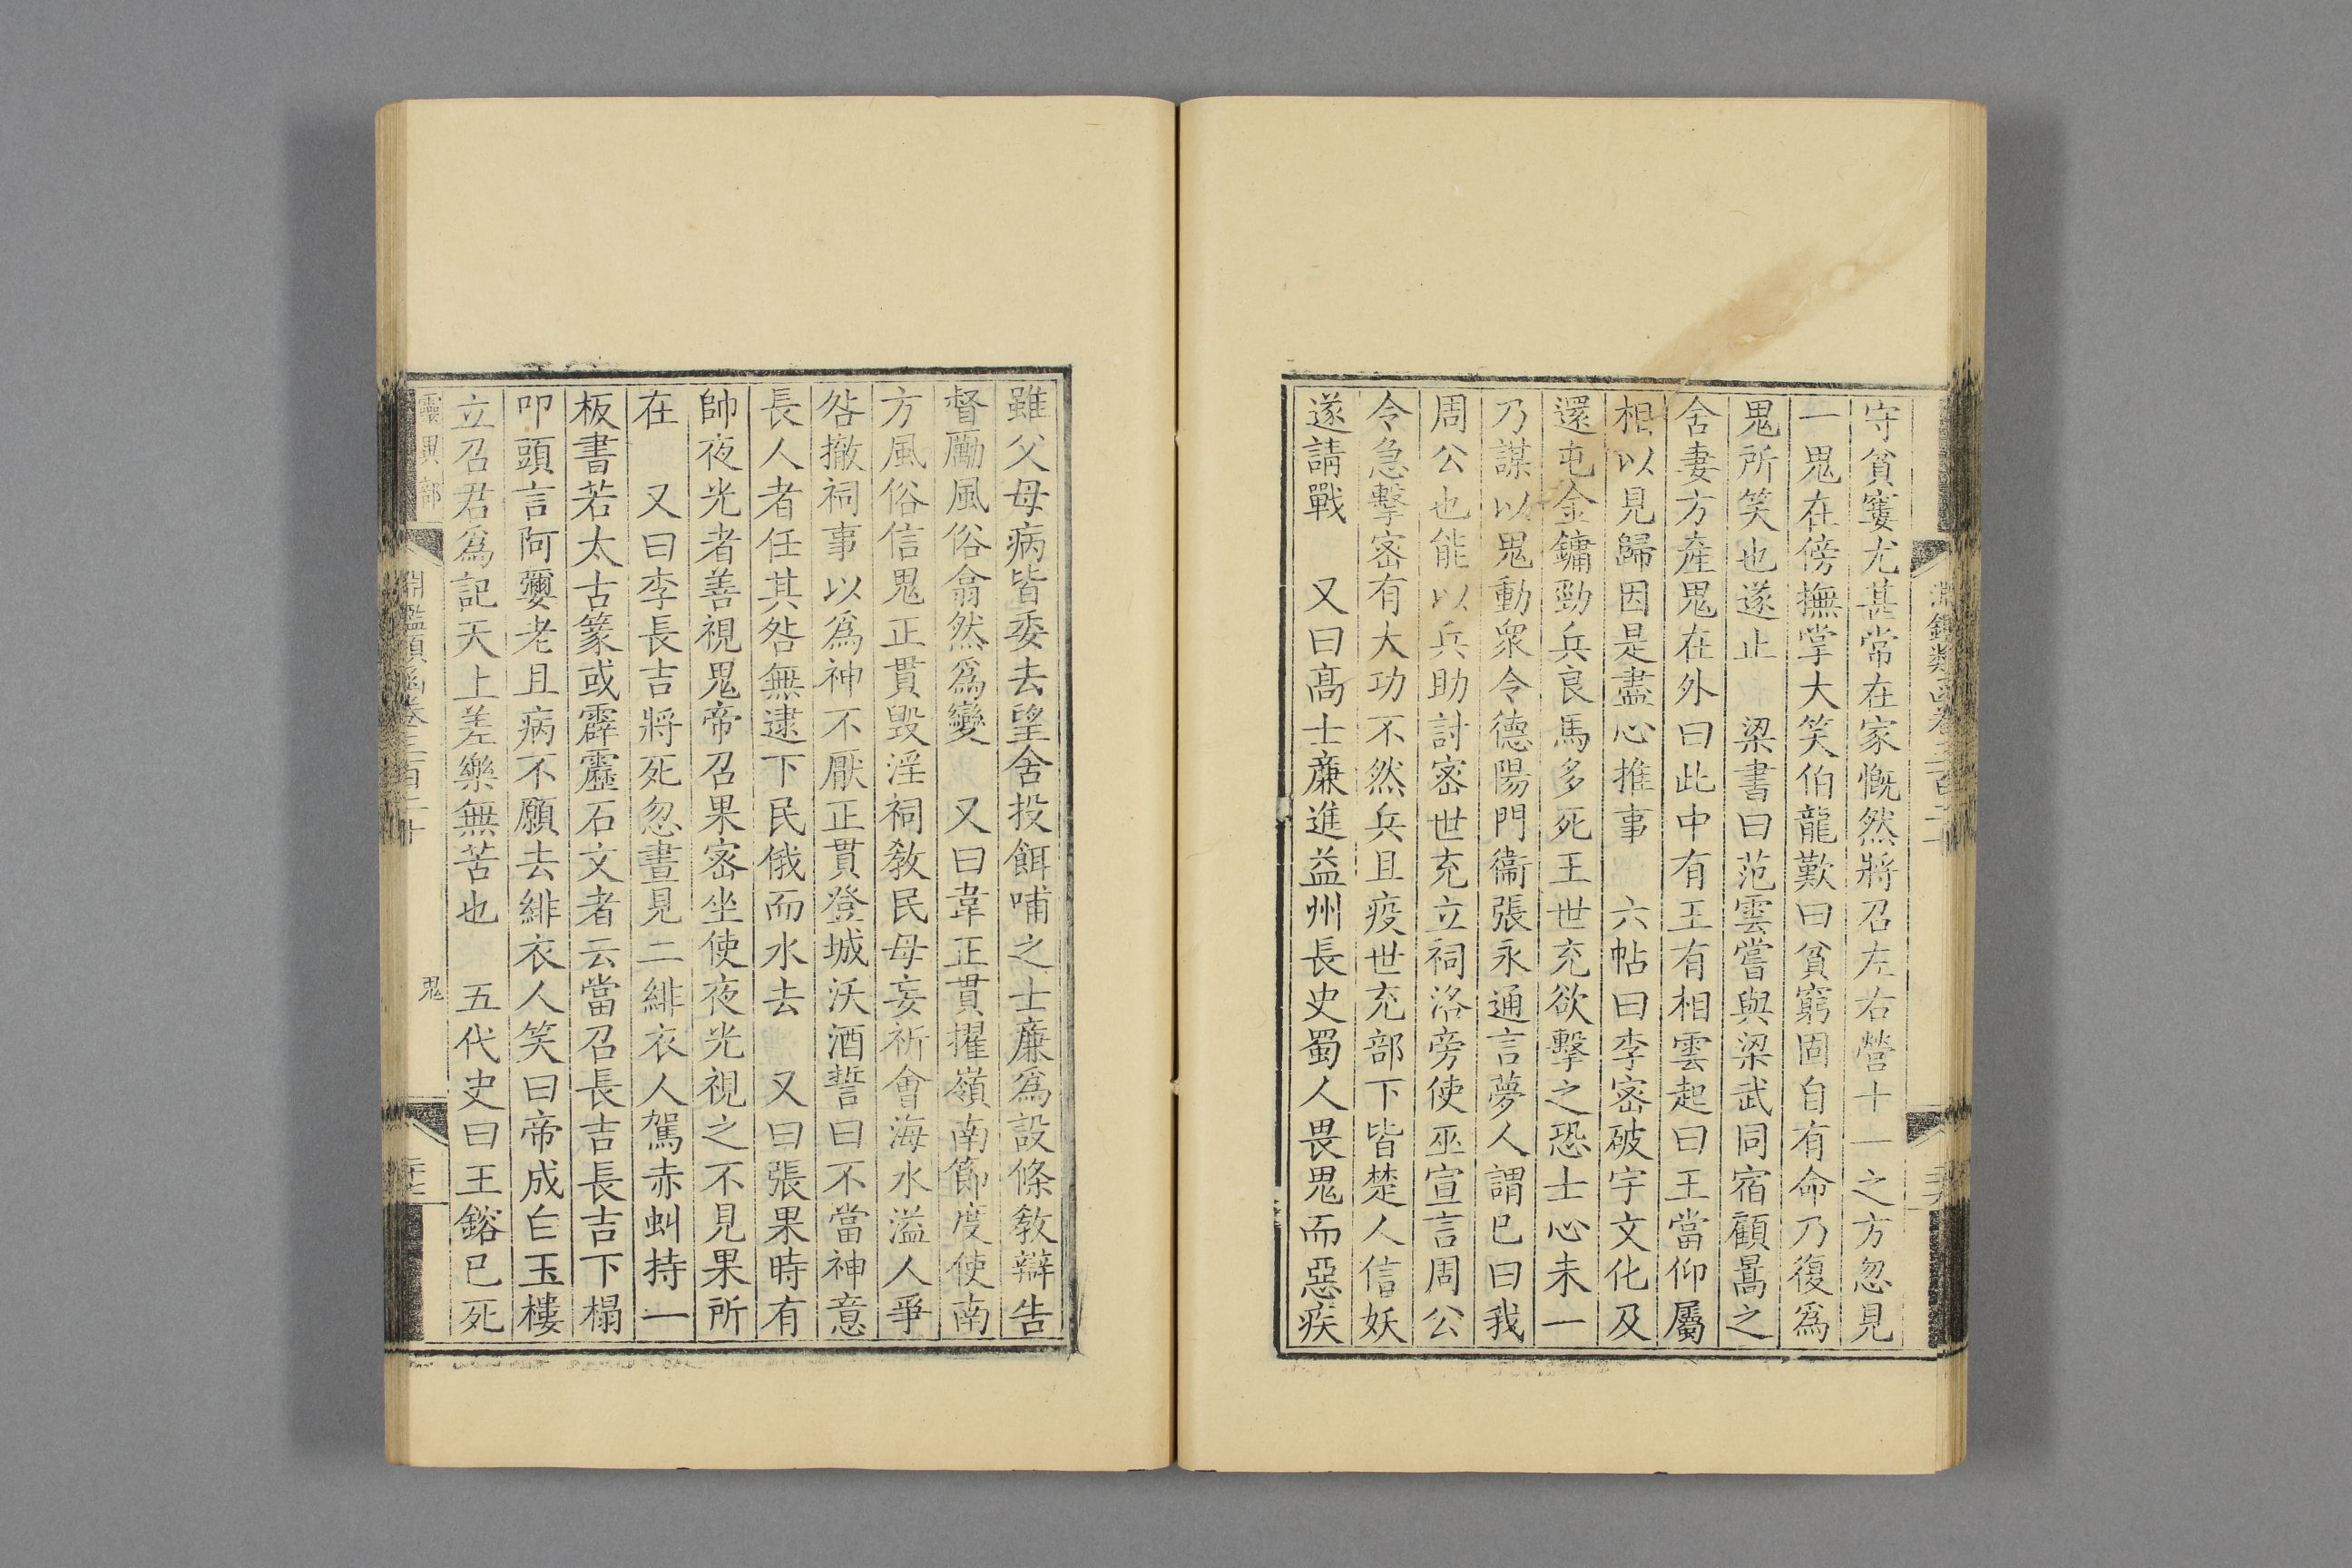 守貧窶尤甚常在家慨然將召左右營十一之方忽見
一鬼在傍撫掌大笑伯龍歎曰貧窮固自有命乃復爲
鬼所笑也遂止　梁書曰范雲嘗與梁武同宿顧暠之
舍妻方產鬼在外曰此中有王有相雲起曰王當仰屬
相以見歸因是盡心推事　六帖曰李密破宇文化及
還屯金鏞勁兵良馬多死王世充欲擊之恐士心未一
乃謀以鬼動衆令德陽門衞張永通言夢人謂已曰我
周公也能以兵助討密世充立祠洛旁使巫宣言周公
令急擊密有大功不然兵且疫世充部下皆楚人信妖
遂請戰　又曰高士廉進益州長史蜀人畏鬼而惡疾
雖父母病皆委去望舍投餌哺之士廉爲設條敎辯告
督勵風俗翕然爲變　又曰韋正貫擢嶺南節度使南
方風俗信鬼正貫毀淫祠敎民毋妄祈會海水溢人爭
咎撤祠事以爲神不厭正貫登城沃酒誓曰不當神意
長人者任其咎無逮下民俄而水去　又曰張果時有
帥夜光者善視鬼帝召果密坐使夜光視之不見果所
在　又曰李長吉將死忽晝見二緋衣人駕赤虯持一
板書若太古篆或霹靂石文者云當召長吉長吉下榻
叩頭言阿㜷老且病不願去緋衣人笑曰帝成白玉樓
立召君爲記天上差樂無苦也　五代史曰王鎔已死
靈異部
淵鑑類函卷三百二十
鬼